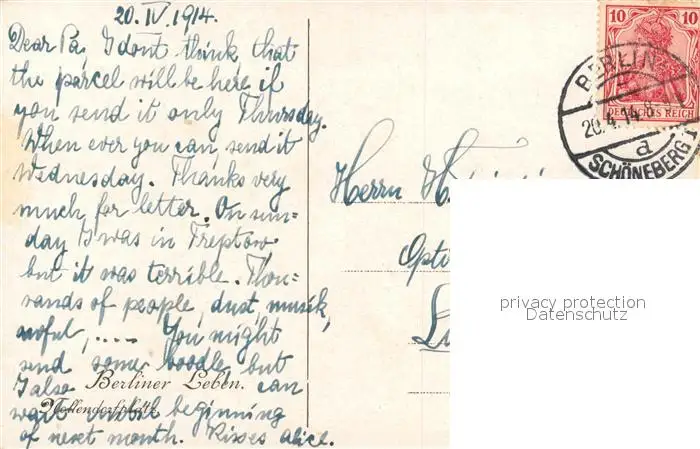 20. IV. 1914.
Dear Pa, I don't think that
the parcel will be here if
you send it only Thursday.
When ever you can, send it
Wednesday. Thanks very
much for letter. On sun=
day I was in Treptow
but it was terrible. Thou=
sands of people, dust, musik,
awful, .... You might
send some boodle but
I also can
wait until beginning
of next month. Kisses Alice.
Berliner Leben.
Nollendorfplatz
Herrn H.
Opti
10 10
DEUTSCHES REICH
BERLIN
20.4.14.8
a
SCHÖNEBERG 1
privacy protection
Datenschutz